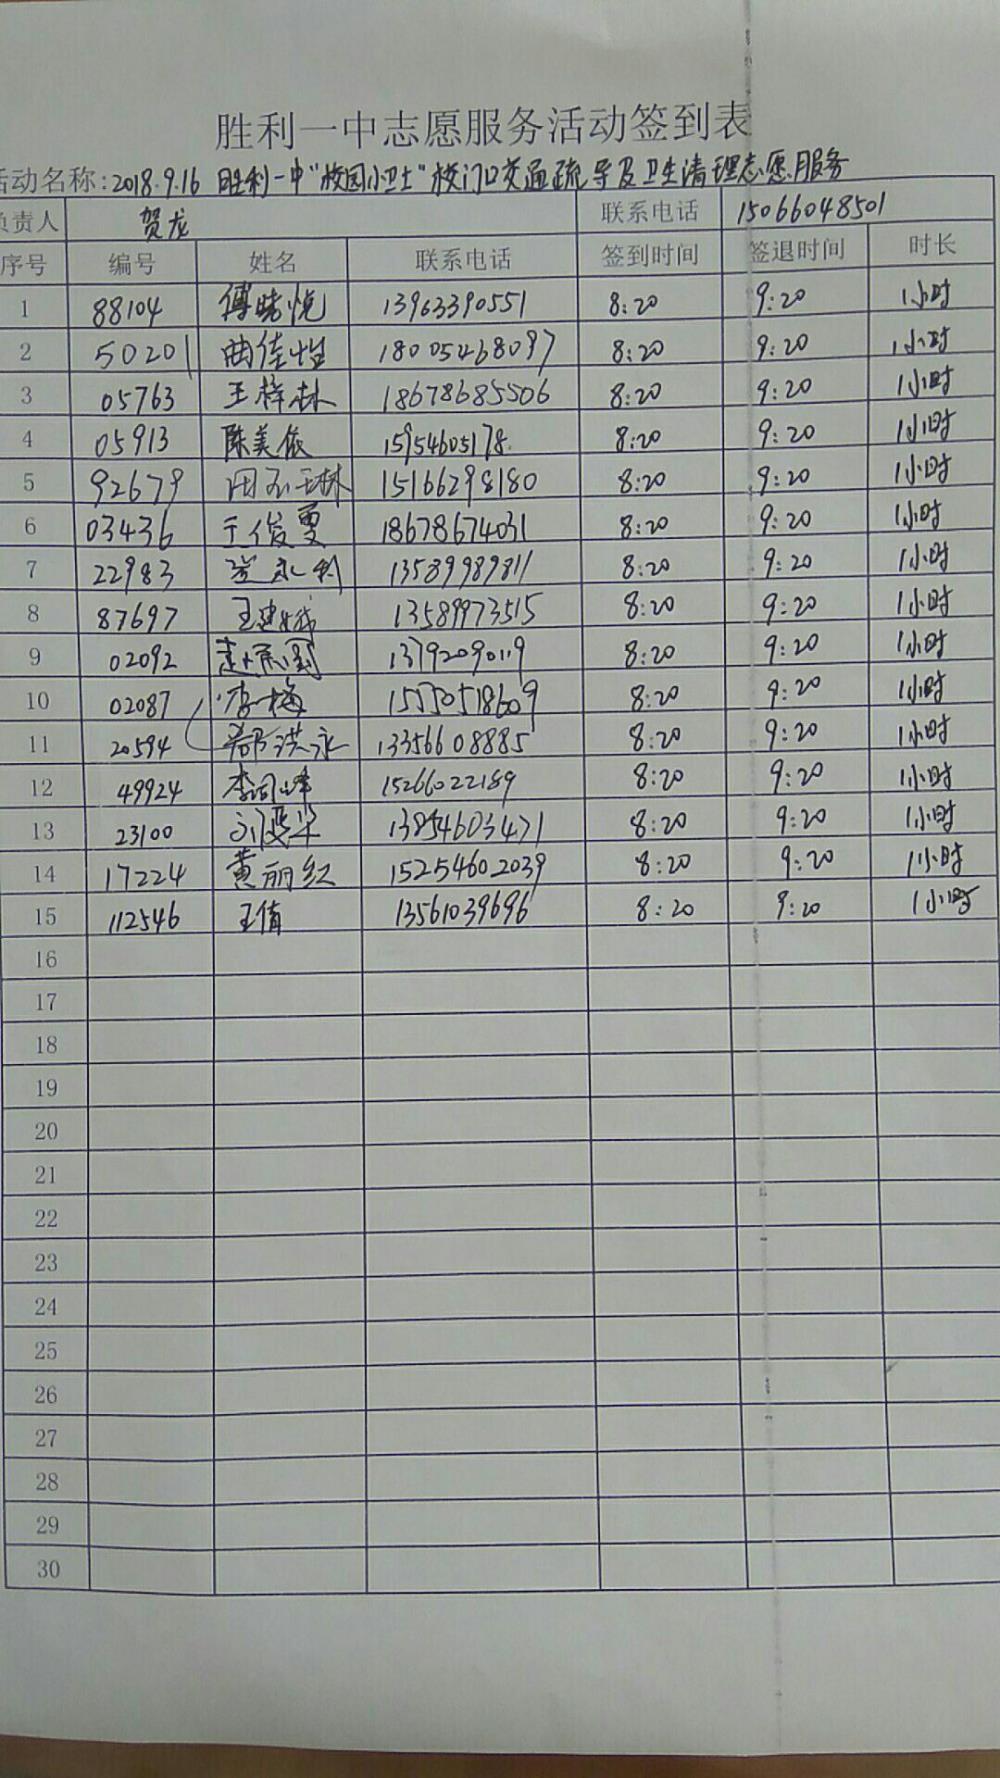 胜利一中志愿服务活动签到表
活动名称:2018.9.16 胜利一中"校园小卫士"校门口交通疏导及卫生清理志愿服务
负责人 贺龙 联系电话 15066048501
序号 编号 姓名 联系电话 签到时间 签退时间 时长
1 88104 傅晓悦 13963390551 8:20 9:20 1小时
2 50201 曲佳怡 18005468097 8:20 9:20 1小时
3 05763 王梓林 18678685506 8:20 9:20 1小时
4 05913 陈美依 15954605178 8:20 9:20 1小时
5 92679 15166298180 8:20 9:20 1小时
6 03436 18678674031 8:20 9:20 1小时
7 22983 13589989811 8:20 9:20 1小时
8 87697 13589973515 8:20 9:20 1小时
9 02092 8:20 9:20 1小时
10 02087 李梅 8:20 9:20 1小时
11 20594 13356608885 8:20 9:20 1小时
12 49924 15266022189 8:20 9:20 1小时
13 23100 13854603471 8:20 9:20 1小时
14 17224 黄丽红 15254602039 8:20 9:20 1小时
15 112546 王倩 13561039696 8:20 9:20 1小时
16
17
18
19
20
21
22
23
24
25
26
27
28
29
30